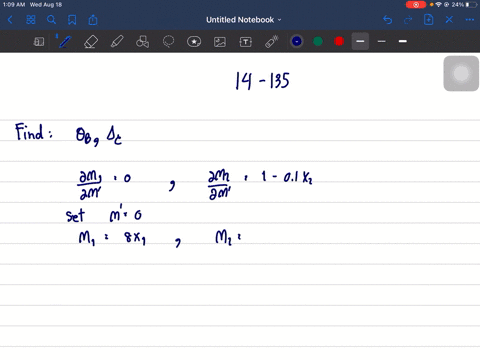 1:09 AM Wed Aug 18
24%
Untitled Notebook
14-135
Find: θB, Δc
∂M1/∂M' = 0 , ∂M2/∂M' = 1 - 0.1x2
Set M' = 0
M1 = 8x1 , M2 =